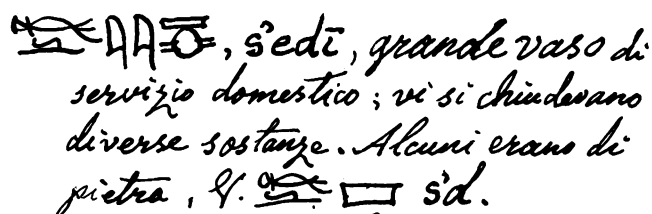 , s̓edī, grande vaso di
servizio domestico; vi si chiudevano
diverse sostanze. Alcuni erano di
pietra, V. s̓d.